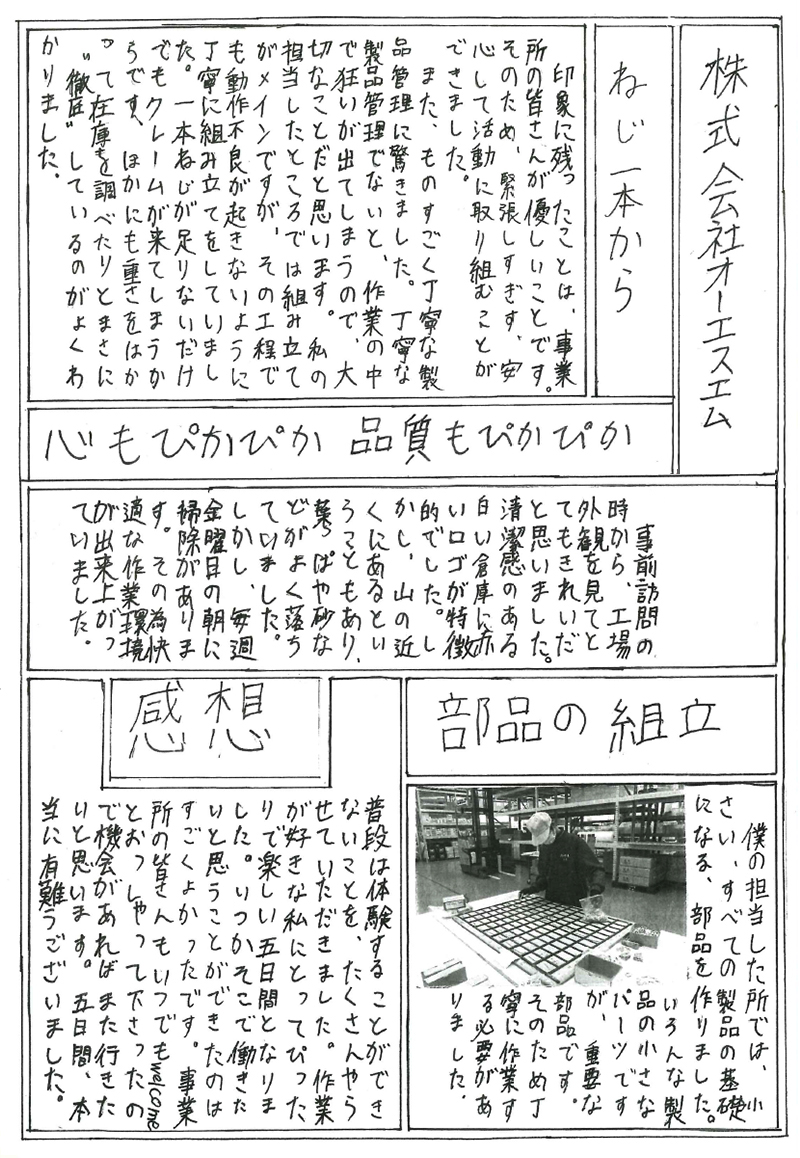 株式会社オーエスエム
ねじ一本から
印象に残ったことは、事業
所の皆さんが優しいことです。
そのため、緊張しすぎず、安
心して活動に取り組むことが
できました。
また、ものすごく丁寧な製
品管理に驚きました。丁寧な
製品管理でないと、作業の中
で狂いが出てしまうので、大
切なことだと思います。私の
担当したところでは組み立て
がメインですが、その工程で
も動作不良が起きないように
丁寧に組み立てをしていまし
た。一本ねじが足りないだけ
でもクレームが来てしまうか
らです、ほかにも重さをはか
って在庫を調べたりとまさに
"徹底"しているのがよくわ
かりました。
心もぴかぴか 品質もぴかぴか
事前訪問の
時から、工場
外観を見てと
てもきれいだ
と思いました。
清潔感のある
白い倉庫に赤
いロゴが特徴
的でした。し
かし、山の近
くにあるとい
うこともあり、
葉っぱや砂な
どがよく落ち
ていました。
しかし、毎週
金曜日の朝に
掃除がありま
す。その為快
適な作業環境
が出来上がっ
ていました。
部品の組立
僕の担当した所では、小
さい、すべての製品の基礎
になる、部品を作りました。
いろんな製
品の小さな
パーツです
が、重要な
部品です。
そのため丁
寧に作業す
る必要があ
りました。
感想
普段は体験することができ
ないことを、たくさんやら
せていただきました。作業
が好きな私にとってぴった
りで楽しい五日間となりま
した。いつかそこで働きた
いと思うことができたのは
すごくよかったです。事業
所の皆さんもいつでもwelcome
とおっしゃって下さったの
で機会があればまた行きた
いと思います。五日間、本
当に有難うございました。